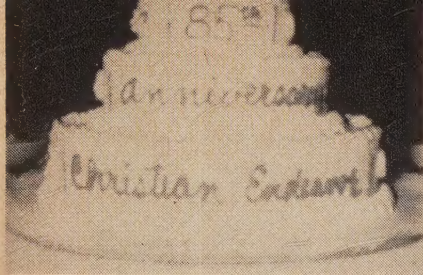 85th
anniversary
Christian Endeavor